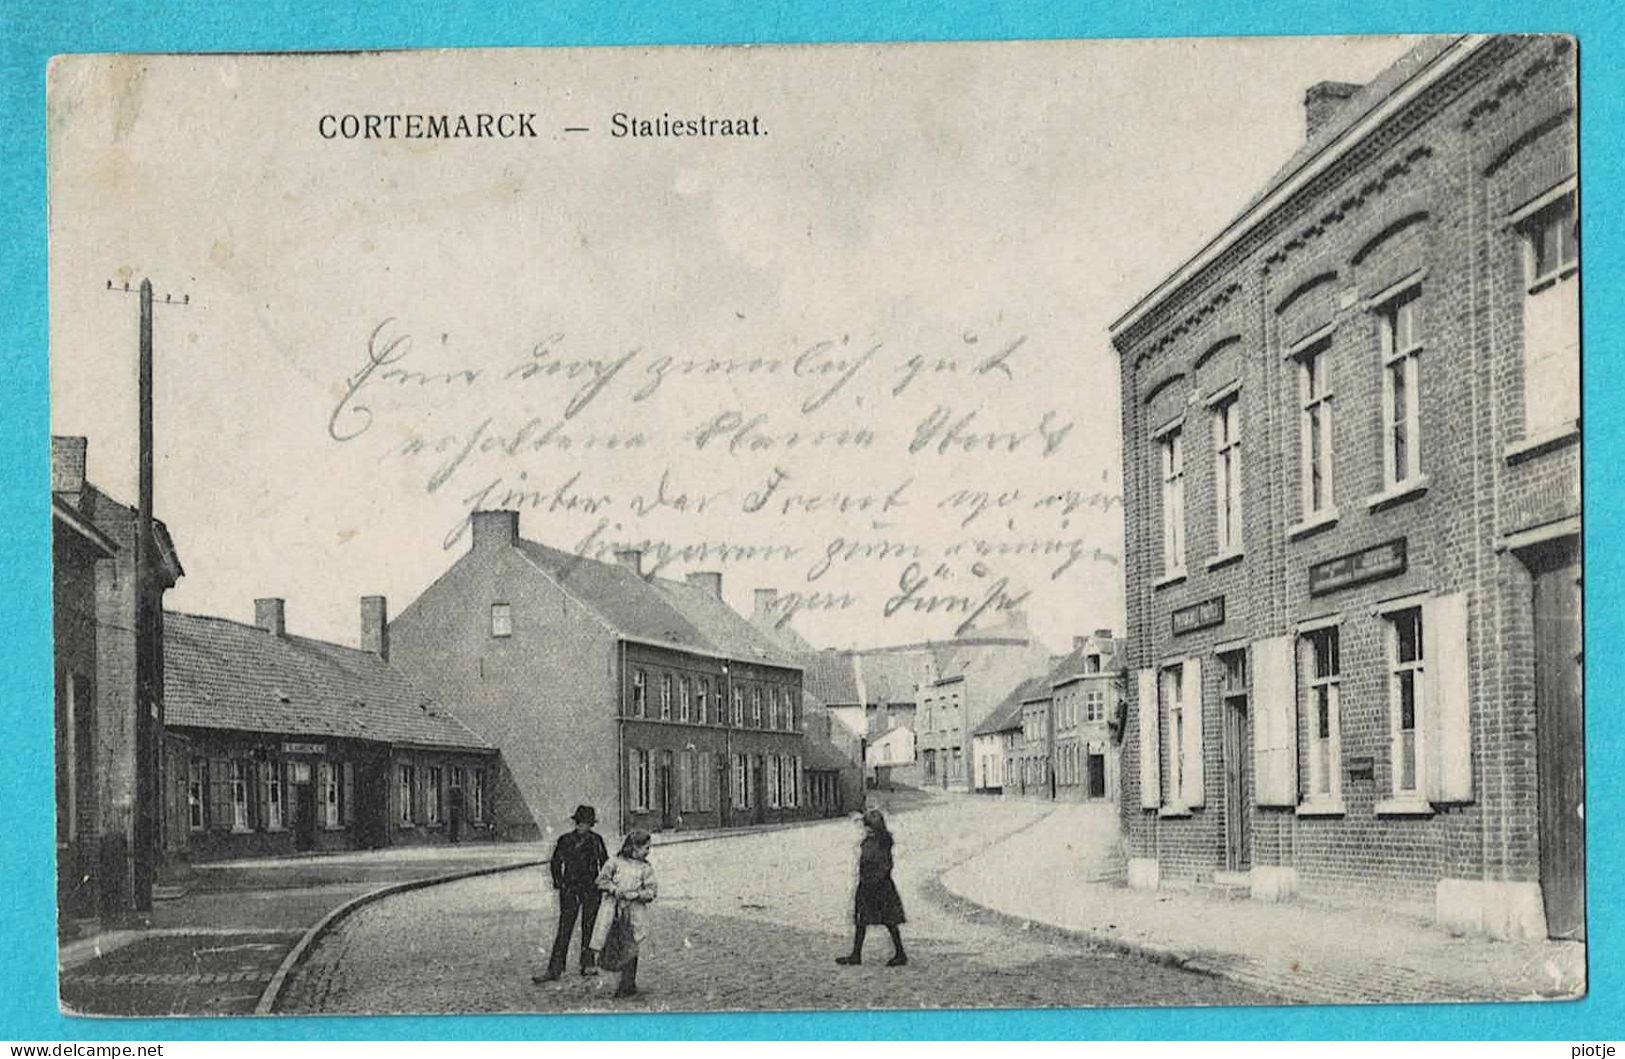 CORTEMARCK — Statiestraat.
Eine noch ziemlich gut
erhaltene kleine Stadt
hinter der Front wo wir
hingaren zum einige
gen Häuse
delcampe.net
piotje